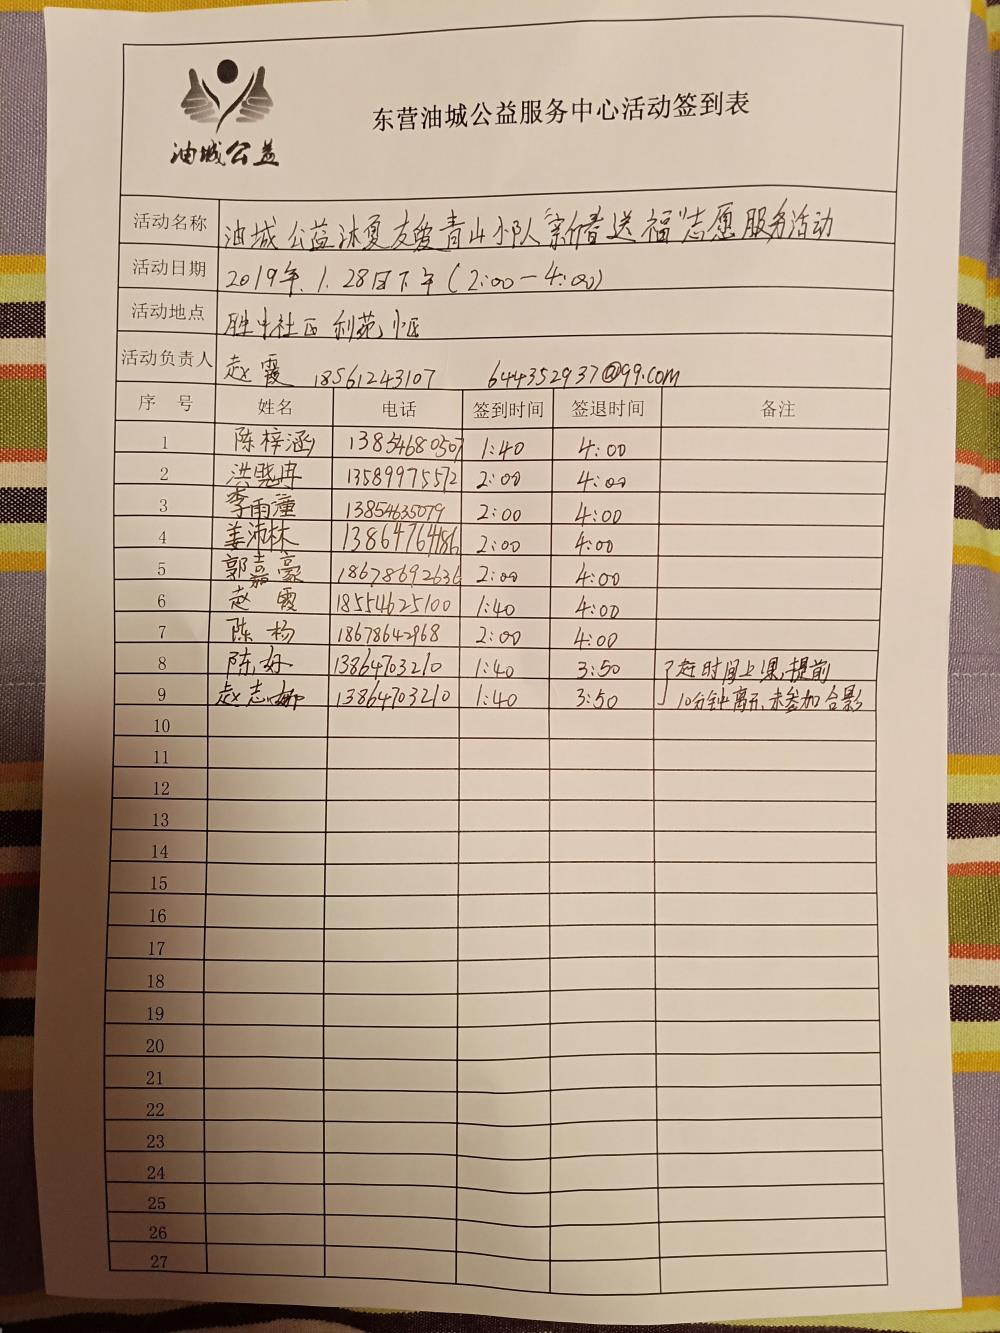 油城公益
东营油城公益服务中心活动签到表
活动名称 油城公益沐夏友爱青山小队"新春送福"志愿服务活动
活动日期 2019年.1.28日下午(2:00-4:00)
活动地点 胜中社区利苑小区
活动负责人 赵霞 18561243107 644352937@qq.com
序号 姓名 电话 签到时间 签退时间 备注
1 陈梓涵 13854680507 1:40 4:00
2 洪晓冉 13589975572 2:00 4:00
3 李雨潼 13854635079 2:00 4:00
4 姜沛林 13864764186 2:00 4:00
5 郭嘉豪 18678692636 2:00 4:00
6 赵霞 18554625100 1:40 4:00
7 陈杨 18678642968 2:00 4:00
8 陈好 13864703210 1:40 3:50 赶时间上课,提前
9 赵志娜 13864703210 1:40 3:50 10分钟离开,未参加合影
10
11
12
13
14
15
16
17
18
19
20
21
22
23
24
25
26
27